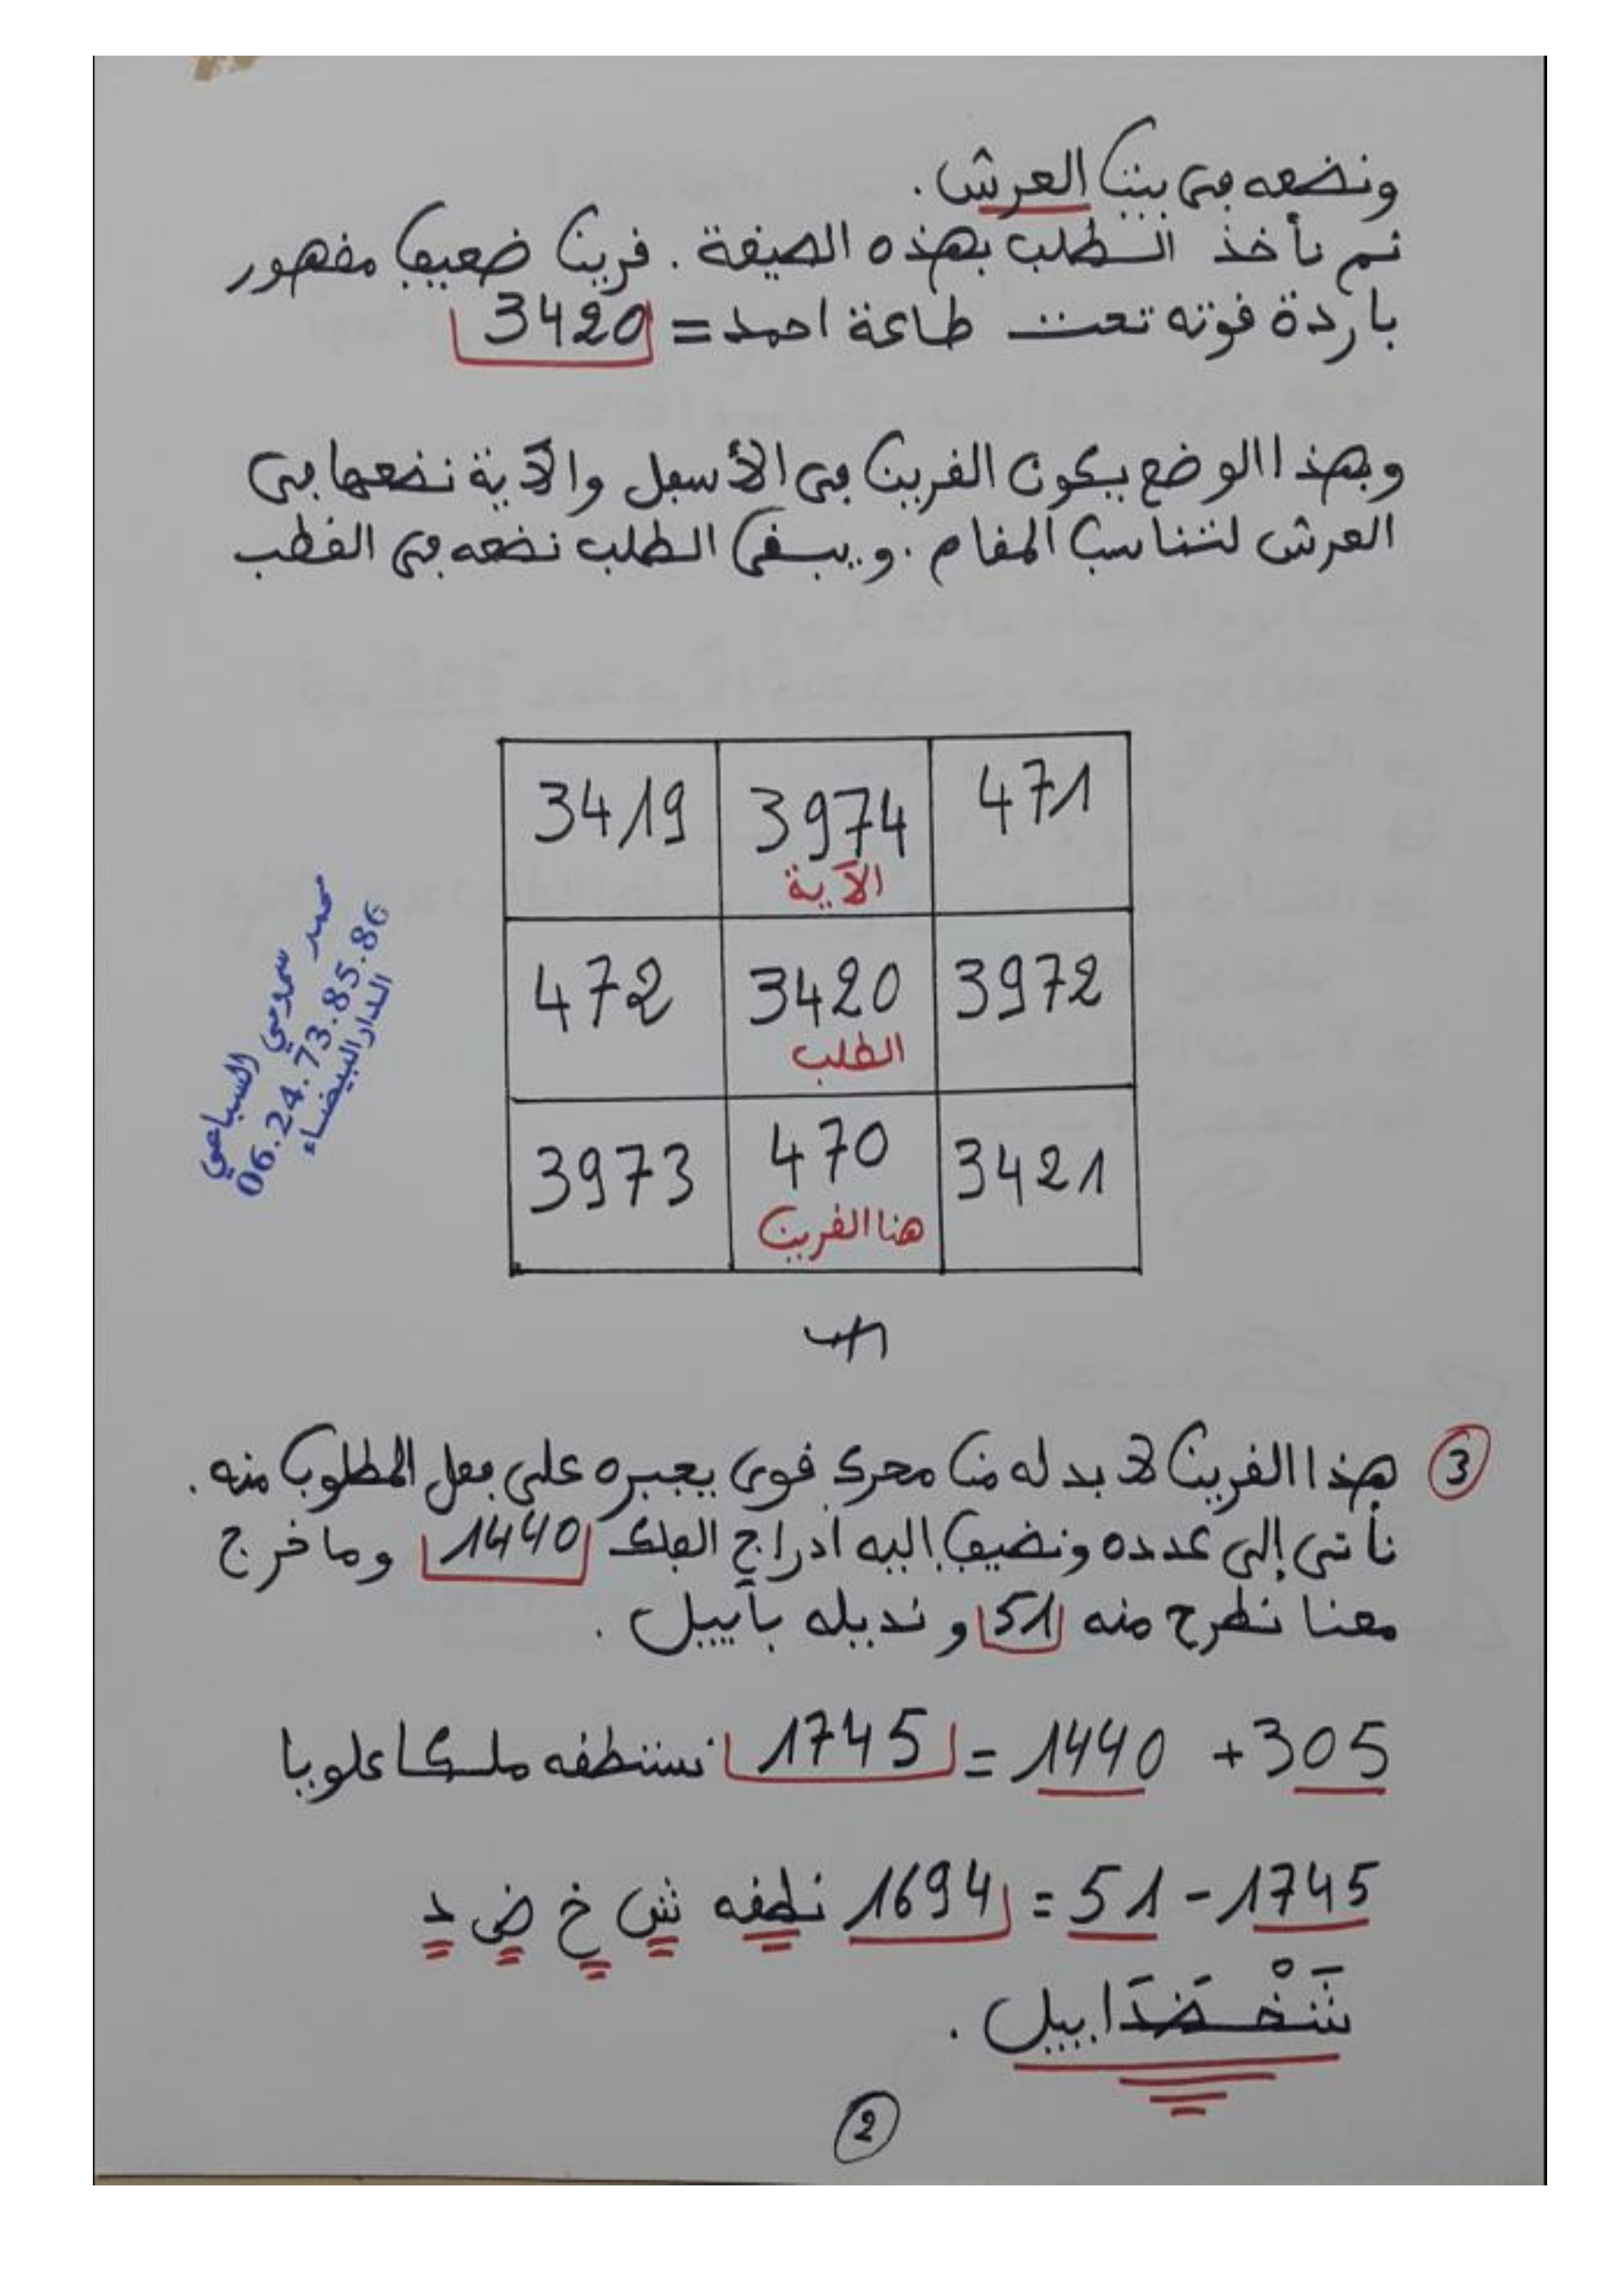 ونضعه في بيت العرش.
ثم نأخذ الطلب بهذه الصيغة. قرين ضعيف مقهور
باردة قوته تحت طاعة احمد = 3420
وبهذا الوضع يكون القرين في الأسفل والآية نضعها في
العرش لتناسب المقام. و يبقى الطلب نضعه في القطب
471 3974 3419
الآية
3972 3420 472
الطلب
3421 470 3973
هنا القرين
محمد السباعي
06.24.73.85.86
الدار البيضاء
③ هذا القرين لا بد له من محرك قوي يجبره على فعل المطلوب منه.
نأتي إلى عدده ونضيف إليه ادراج الفلك 1440 وما خرج
معنا نطرح منه 51 و نذيله بآييل.
305 + 1440 = 1745 نستنطقه ملكا علويا
1745 - 51 = 1694 نطقه ش خ ض د
شَخْضَدَاييل.
②